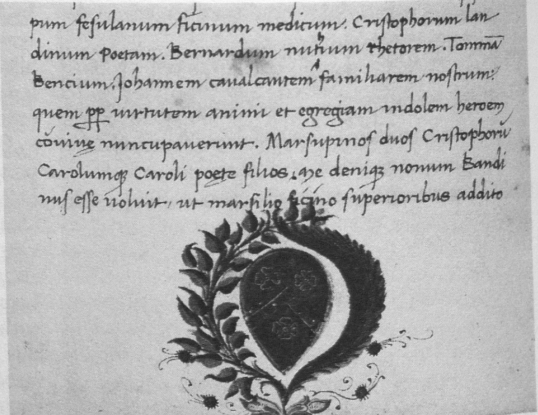 pum fesulanum ficinum medicum. Cristophorum lan
dinum Poetam. Bernardum nutium Rhetorem. Tommā
Bencium. Johannem cavalcantem familiarem nostrum:
quem ꝓꝑ virtutem animi et egregiam indolem heroem
cōviuę nuncupaverunt. Marsupinos duos Cristophorū
Carolumqꝫ Caroli poętę filios. Me deniqꝫ nonum Bandi
nus esse voluit, ut marsilio ficino superioribus addito